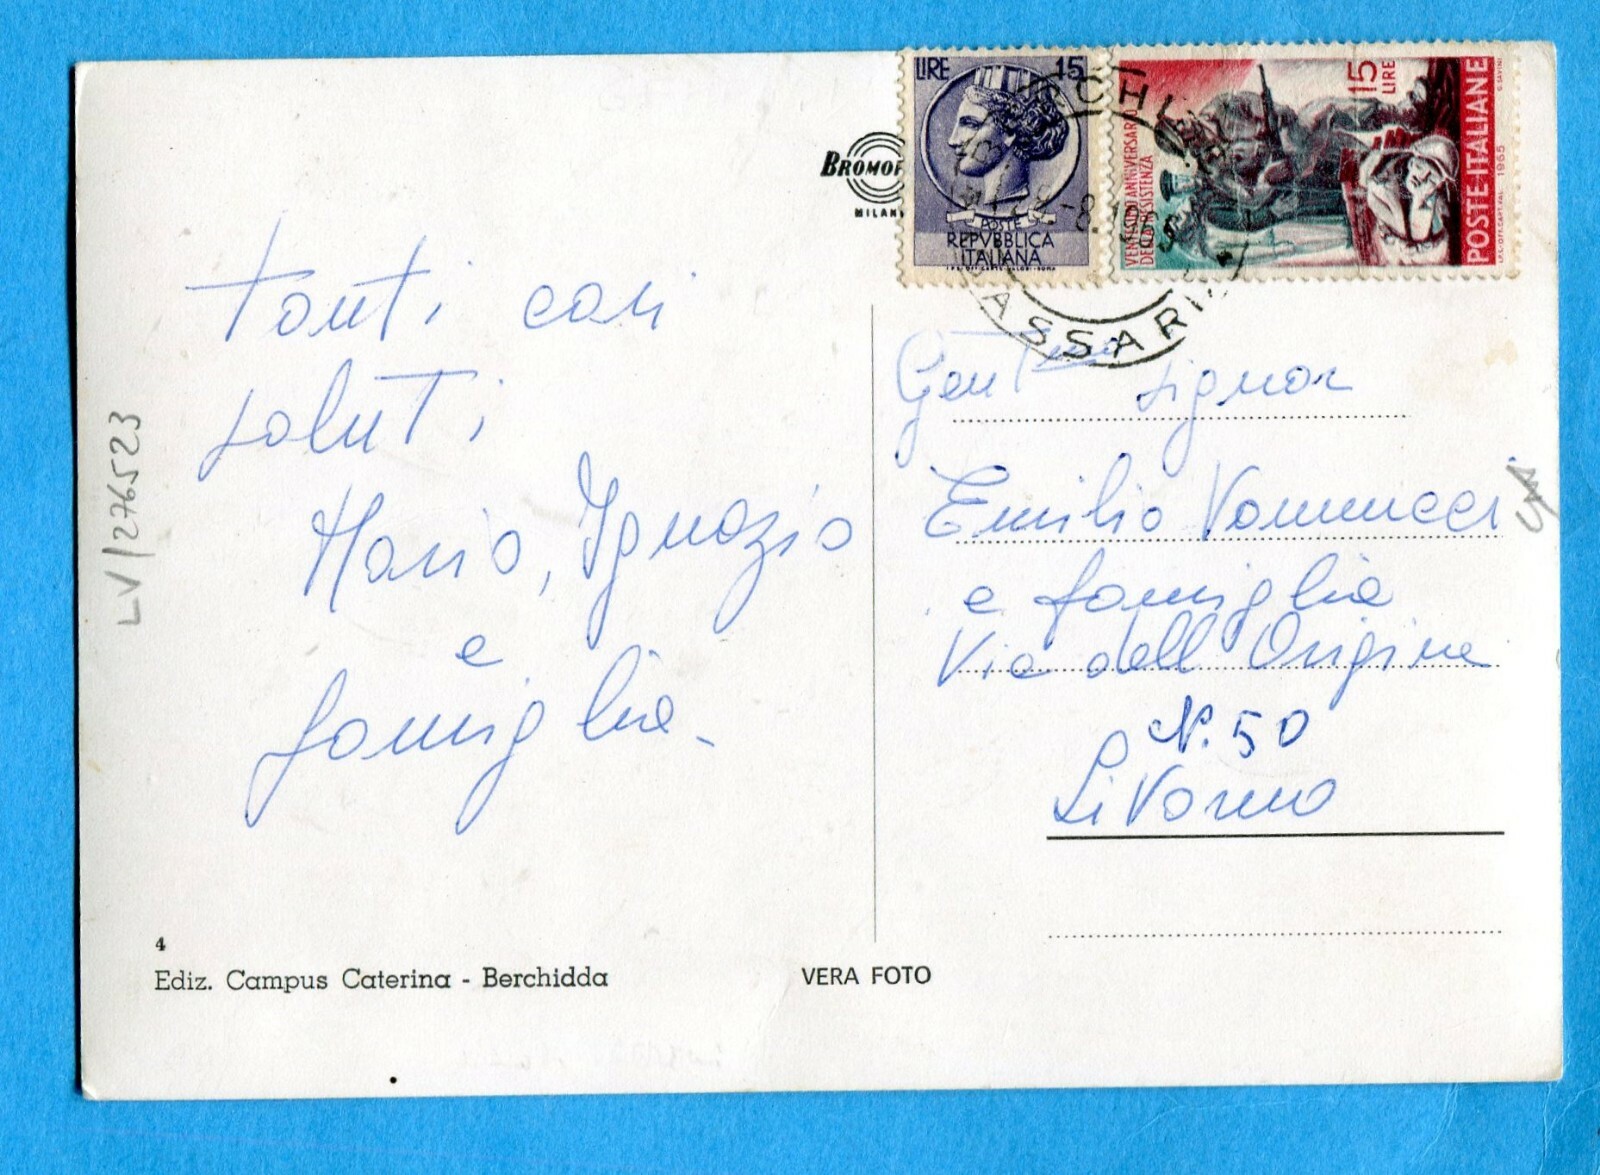 BROMOF
MILAN
LIRE 15
POSTE
REPVBBLICA
ITALIANA
I.P.S. OFF. CARTE VALORI - ROMA
VENTESIMO ANNIVERSARIO
DELLA RESISTENZA
15
LIRE
POSTE ITALIANE
1965
SASSARI
Tanti cari
saluti
Mario, Ignazio
e
famiglia.
LV/276523
Gent mo signor
Emilio Vannucci
e famiglia
Via dell Origine
N. 50
Livorno
4
Ediz. Campus Caterina - Berchidda
VERA FOTO